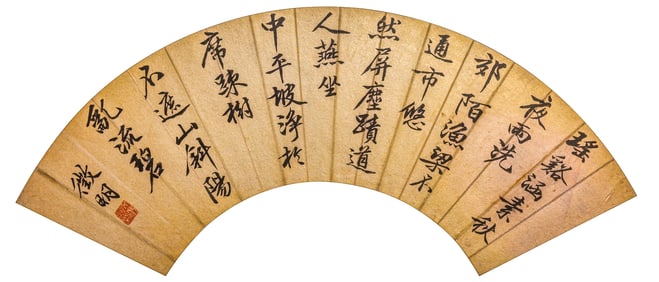 瑶谿涵素秋
夜雨洗
郊陌漁梁不
通市悠
然屏塵蹟道
人燕坐
中平坡淨於
席踈樹
不遮山斜陽
亂流碧
徵明